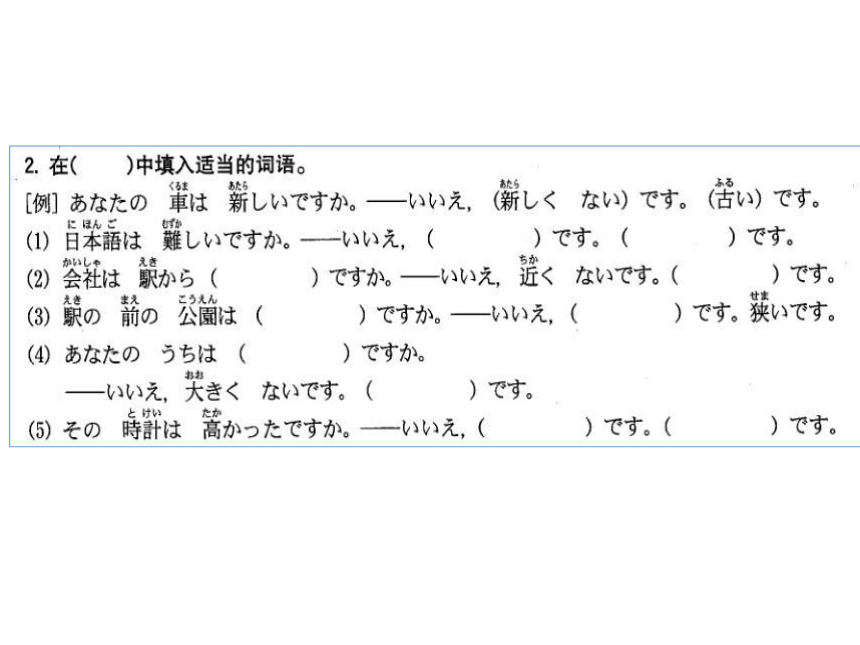 2. 在(　　)中填入适当的词语。
[例] あなたの 車は 新しいですか。——いいえ, (新しく ない) です。(古い) です。
(1) 日本語は 難しいですか。——いいえ, (　　) です。(　　) です。
(2) 会社は 駅から (　　) ですか。——いいえ, 近く ないです。(　　) です。
(3) 駅の 前の 公園は (　　) ですか。——いいえ, (　　) です。狭いです。
(4) あなたの うちは (　　) ですか。
——いいえ, 大きく ないです。(　　) です。
(5) その 時計は 高かったですか。——いいえ, (　　) です。(　　) です。